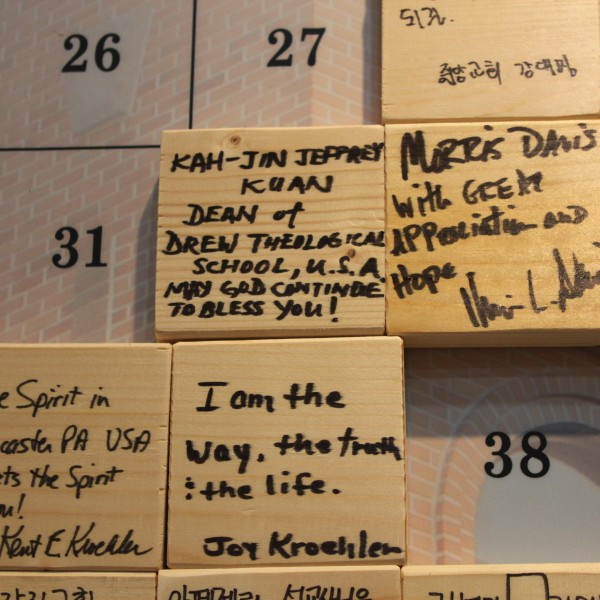 26
27
되길.
중앙교회 강대명
KAH-JIN JEFFREY
KUAN
DEAN of
DREW THEOLOGICAL
SCHOOL, U.S.A.
MAY GOD CONTINUE
TO BLESS YOU!
MORRIS DAVIS
With GREAt
APPReciation and
Hope
31
e Spirit in
caster PA USA
ets the Spirit
ou!
Kent E. Kroehler
I am the
way, the truth
: the life.
Joy Kroehler
38